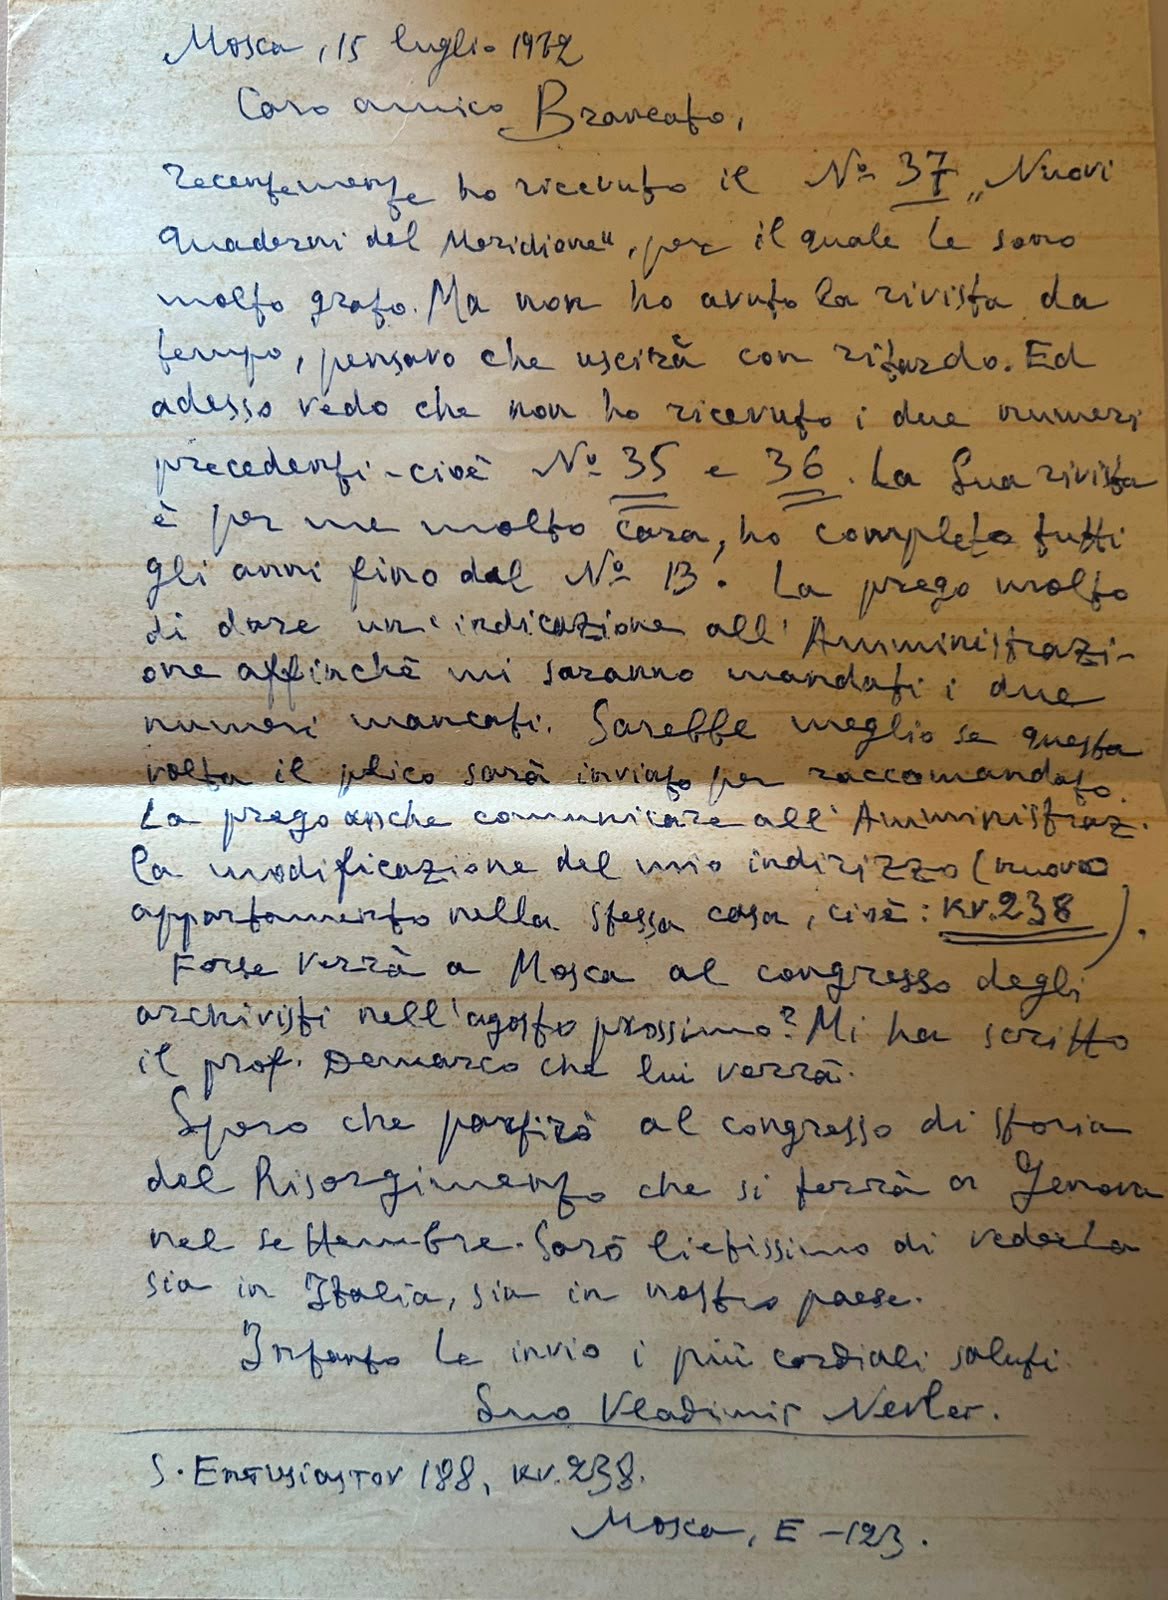 Mosca, 15 luglio 1972
Caro amico Brancato,
recentemente ho ricevuto il No 37 „Nuovi
Quaderni del Meridione", per il quale Le sono
molto grato. Ma non ho avuto la rivista da
tempo, pensavo che uscirà con ritardo. Ed
adesso vedo che non ho ricevuto i due numeri
precedenti - cioè No 35 e 36. La Sua rivista
è per me molto cara, ho completo tutti
gli anni fino dal No 13. La prego molto
di dare un'indicazione all'Amministrazi-
one affinchè mi saranno mandati i due
numeri mancati. Sarebbe meglio se questa
volta il plico sarà inviato per raccomandato.
La prego anche comunicare all'Amministraz.
la modificazione del mio indirizzo (nuovo
appartamento nella stessa casa, cioè: kv. 238).
Forse verrà a Mosca al congresso degli
archivisti nell'agosto prossimo? Mi ha scritto
il prof. Demarco che lui verrà.
Spero che partirà al congresso di storia
del Risorgimento che si terrà a Genova
nel settembre. Sarò lietissimo di vederLa
sia in Italia, sia in nostro paese.
Intanto Le invio i più cordiali saluti.
Suo Vladimir Nevler.
S. Entusiastov 188, kv. 238.
Mosca, E-123.